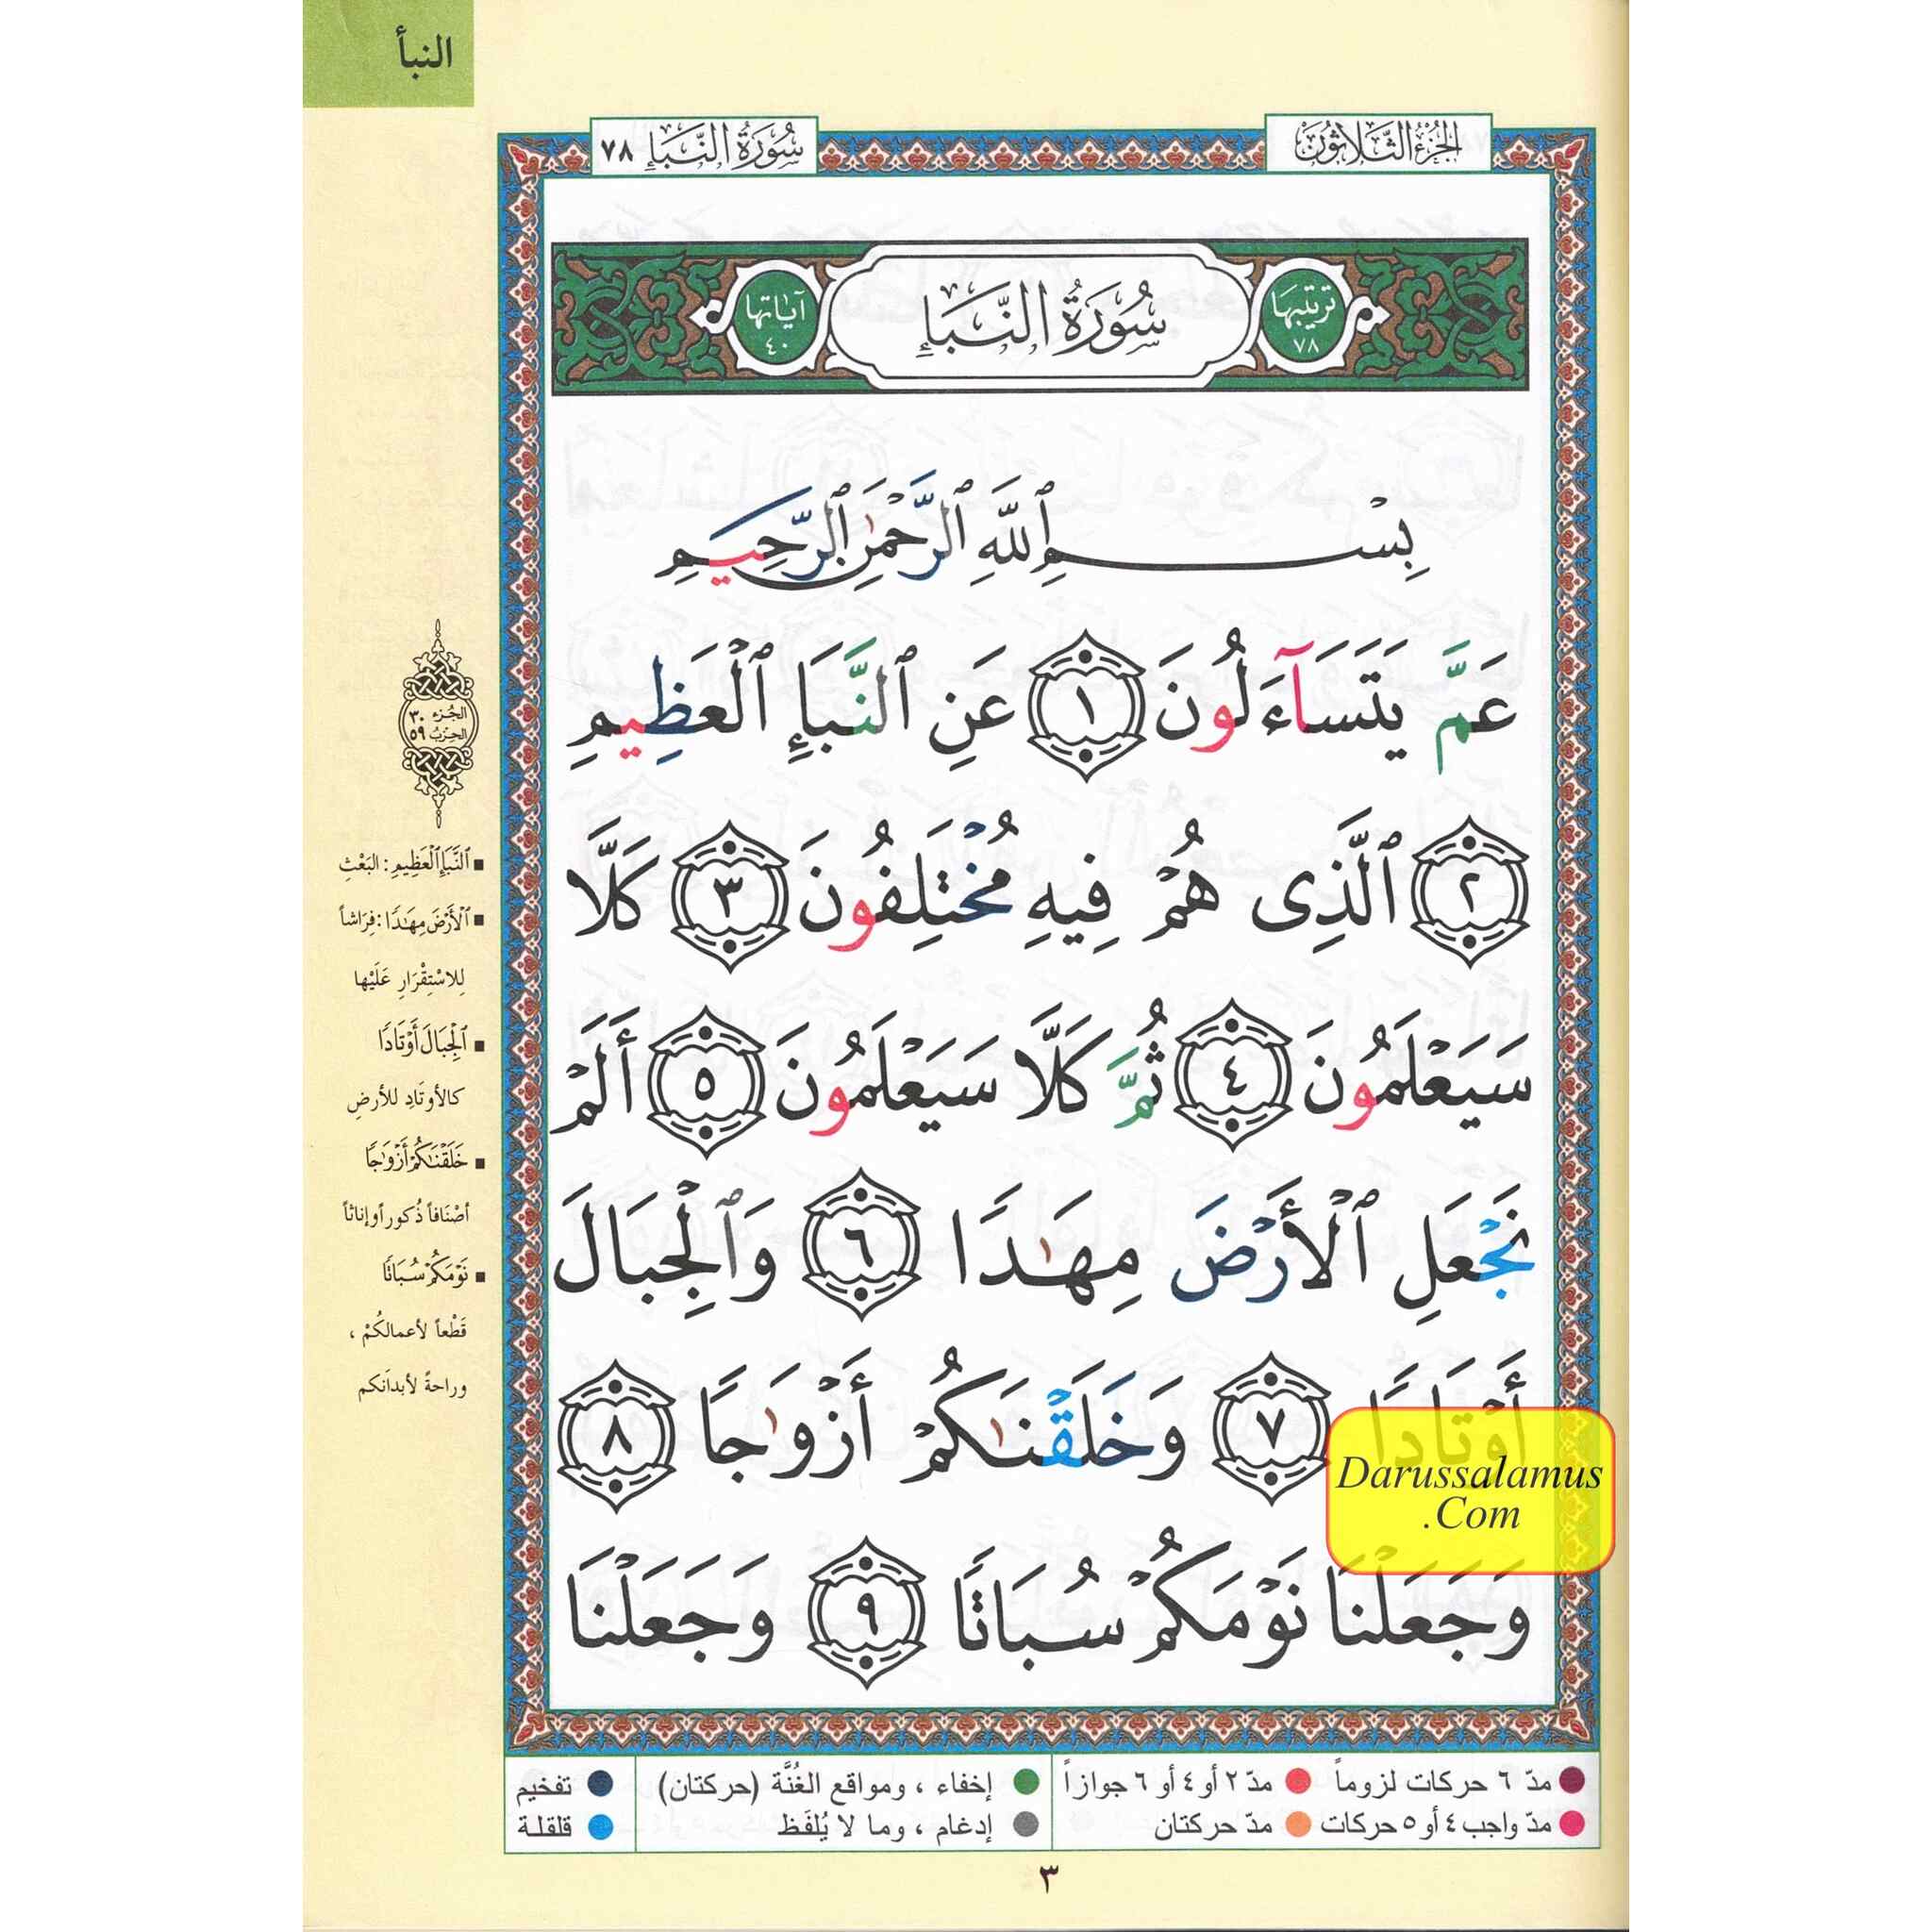 النبأ
الجزء الثلاثون
سورة النبإ ٧٨
ترتيبها ٧٨
سُورَةُ النَّبَإِ
آياتها ٤٠
بِسْمِ ٱللَّهِ ٱلرَّحْمَٰنِ ٱلرَّحِيمِ
عَمَّ يَتَسَآءَلُونَ ١ عَنِ ٱلنَّبَإِ ٱلْعَظِيمِ
٢ ٱلَّذِى هُمْ فِيهِ مُخْتَلِفُونَ ٣ كَلَّا
سَيَعْلَمُونَ ٤ ثُمَّ كَلَّا سَيَعْلَمُونَ ٥ أَلَمْ
نَجْعَلِ ٱلْأَرْضَ مِهَٰدًا ٦ وَٱلْجِبَالَ
أَوْتَادًا ٧ وَخَلَقْنَٰكُمْ أَزْوَٰجًا ٨
وَجَعَلْنَا نَوْمَكُمْ سُبَاتًا ٩ وَجَعَلْنَا
Darussalamus
.Com
الجزء ٣٠
الحزب ٥٩
■ ٱلنَّبَإِ ٱلْعَظِيمِ : البَعْثِ
■ ٱلْأَرْضَ مِهَٰدًا : فِرَاشاً
لِلاسْتِقْرَارِ عَلَيْها
■ ٱلْجِبَالَ أَوْتَادًا
كالأوتَادِ للأرضِ
■ خَلَقْنَٰكُمْ أَزْوَٰجًا
أصْنَافاً ذُكوراً وإناثاً
■ نَوْمَكُمْ سُبَاتًا
قَطْعاً لأعمالكُمْ ،
وراحةً لأبدَانكم
مدّ ٦ حركات لزوماً
مدّ ٢ أو ٤ أو ٦ جوازاً
إخفاء ، ومواقع الغُنَّة (حركتان)
تفخيم
مدّ واجب ٤ أو ٥ حركات
مدّ حركتان
إدغام ، وما لا يُلفَظ
قلقلة
٣